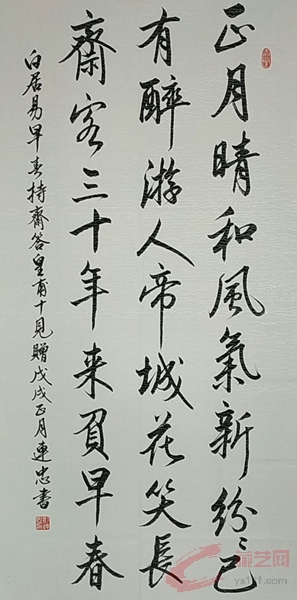 正月晴和風氣新紛〻已
有醉游人帝城花笑長
齋客三十年來負早春
白居易早春持齋答皇甫十見贈戊戌正月連忠書